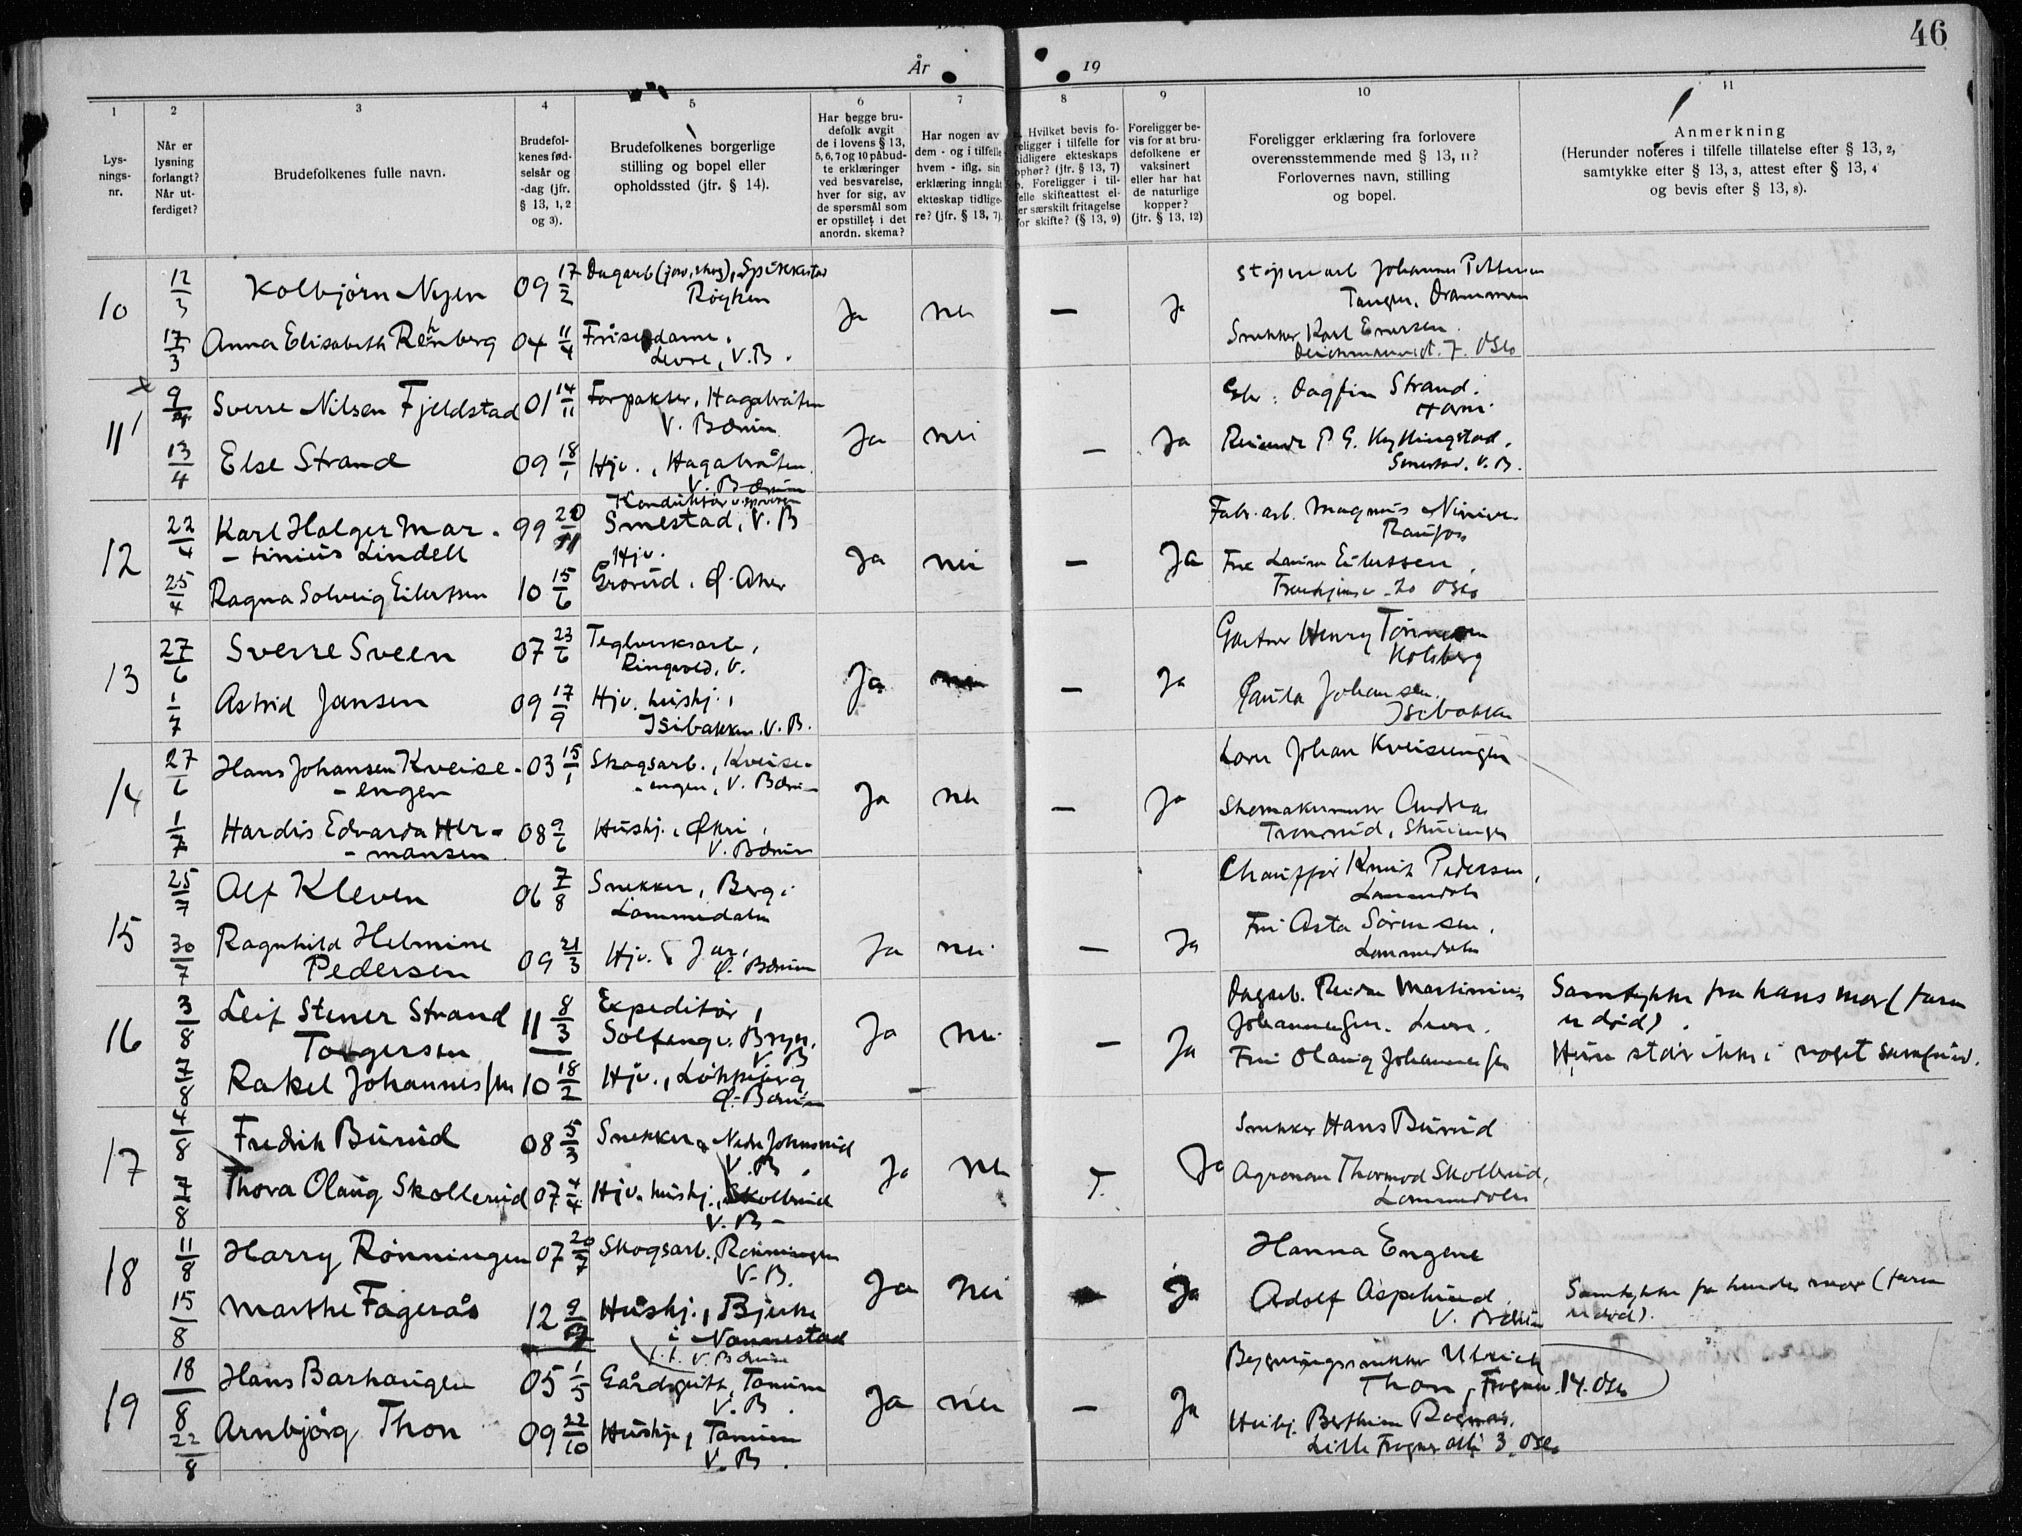 46
År
19
1
2
3
4
5
6
7
8
9
10
11
Lys-
nings-
nr.
Når er
lysning
forlangt?
Når ut-
ferdiget?
Brudefolkenes fulle navn.
Brudefol-
kenes fød-
selsår og
-dag (jfr.
§ 13, 1, 2
og 3).
Brudefolkenes borgerlige
stilling og bopel eller
opholdssted (jfr. § 14).
Har begge bru-
defolk avgit
de i lovens § 13,
5, 6, 7 og 10 påbud-
te erklæringer
ved besvarelse,
hver for sig, av
de spørsmål som
er opstillet i det
anordn. skema?
Har nogen av
dem - og i tilfelle
hvem - iflg. sin
erklæring inngåt
ekteskap tidlige-
re? (jfr. § 13, 7).
Hvilket bevis fo-
religger i tilfelle for
tidligere ekteskaps
ophør? (jfr. § 13, 7)
b. Foreligger i til-
felle skifteattest el-
ler særskilt fritagelse
for skifte? (§ 13, 9)
Foreligger be-
vis for at bru-
defolkene er
vaksinert
eller har hat
de naturlige
kopper?
(jfr. § 13, 12)
Foreligger erklæring fra forlovere
overensstemmende med § 13, 11?
Forlovernes navn, stilling
og bopel.
Anmerkning
(Herunder noteres i tilfelle tillatelse efter § 13, 2,
samtykke efter § 13, 3, attest efter § 13, 4
og bevis efter § 13, 8).
10
12/3 Kolbjørn Nyen 09 17/2 Dagarb (jord, skog), Spikkestad
Røyken
Ja nei — Ja
Støperiarb Johannes Pettersen
Tangen, Drammen
17/3 Anna Elisabeth Rehnberg 04 11/4 Frisørdame,
Levre, V.B.
Snekker Karl Enersen
7. Oslo
11
9/4 Sverre Nilsen Fjeldstad 01 14/11 Forpakter, Hagabråten
V. Bærum
Ja nei — Ja
Dagfin Strand.
13/4 Else Strand 09 18/1 Hjv., Hagabråten
V. Bærum
Reisende P. G. Kyllingstad.
V. B.
12
22/4 Karl Holger Mar-
-tinius Lindell 99 20/11 Konduktør
Smestad, V.B
Ja nei — Ja
Fabr. arb. Magnus
Raufoss
25/4 Ragna Solveig Eilertsen 10 15/6 Hjv.
Grorud. Ø. Aker
Laura Eilertsen,
20 Oslo
13
27/6 Sverre Sveen 07 23/6 Teglverksarb,
Ringvold, V.
Ja nei — Ja
Gartner Henry
Holsberg
1/7 Astrid Jansen 09 17/9 Hjv. hushj.,
Isibakken. V.B.
Paula Johansen.
Isibakken
14
27/6 Hans Johansen Kveise-
-engen 03 15/1 Skogsarb., Kveise-
-engen, V. Bærum
Ja nei — Ja
Johan Kveisengen
1/7 Hardis Edvarda Her-
-mansen 08 9/6 Hushj., Økri,
V. Bærum
Skomakermester Andreas
Tronrud,
15
25/7 Alf Kleven 06 7/8 Snekker, Berg i
Lommedalen
Ja nei — Ja
Chauffør Knut Pedersen,
Lommedalen
30/7 Ragnhild Helmine
Pedersen 09 21/3 Hjv. Jar,
Ø. Bærum
Frk Asta Sørensen,
Lommedalen
16
3/8 Leif Stener Strand
Torgersen 11 8/3 Expeditør,
Solfengv. Bryn,
V.B
Ja nei — Ja
Dagarb. Reidar Martinius
Johannessen. Levre.
Samtykke fra hans mor (faren
er død).
7/8 Rakel Johannessen 10 18/2 Hjv., Løkkeberg
Ø. Bærum
Frk Olaug Johannessen
Hun står ikke i noget samfund.
17
4/8 Fredrik Burud 08 5/3 Snekker, Nedre Johnsrud
V. B,
Ja nei Ja
Snekker Hans Burud
7/8 Thora Olaug Skollerud 07 4/4 Hjv. hushj., Skollerud
V. B
Agronom Thormod Skollerud,
Lommedalen
18
11/8 Harry Rønningen 07 20/7 Skogsarb. Rønningen
V. B.
Ja nei — Ja
Hanna Engene
15/8 Marthe Fagerås 12 9/9 Hushj., Bjerke
i Nannestad
V. Bærum
Adolf Aspelund,
V. Bærum
Samtykke fra hendes mor (faren
er død).
19
18/8 Hans Barhaugen 05 1/5 Gårdsgutt, Tanum
V. B.
Ja nei — Ja
Bygningssnekker Ulrich
Thon, 14. Oslo
22/8 Arnbjørg Thon 09 22/10 Hushj., Tanum
V. B.
Hushj. Berthine
Lille Frogner allé 3, Oslo